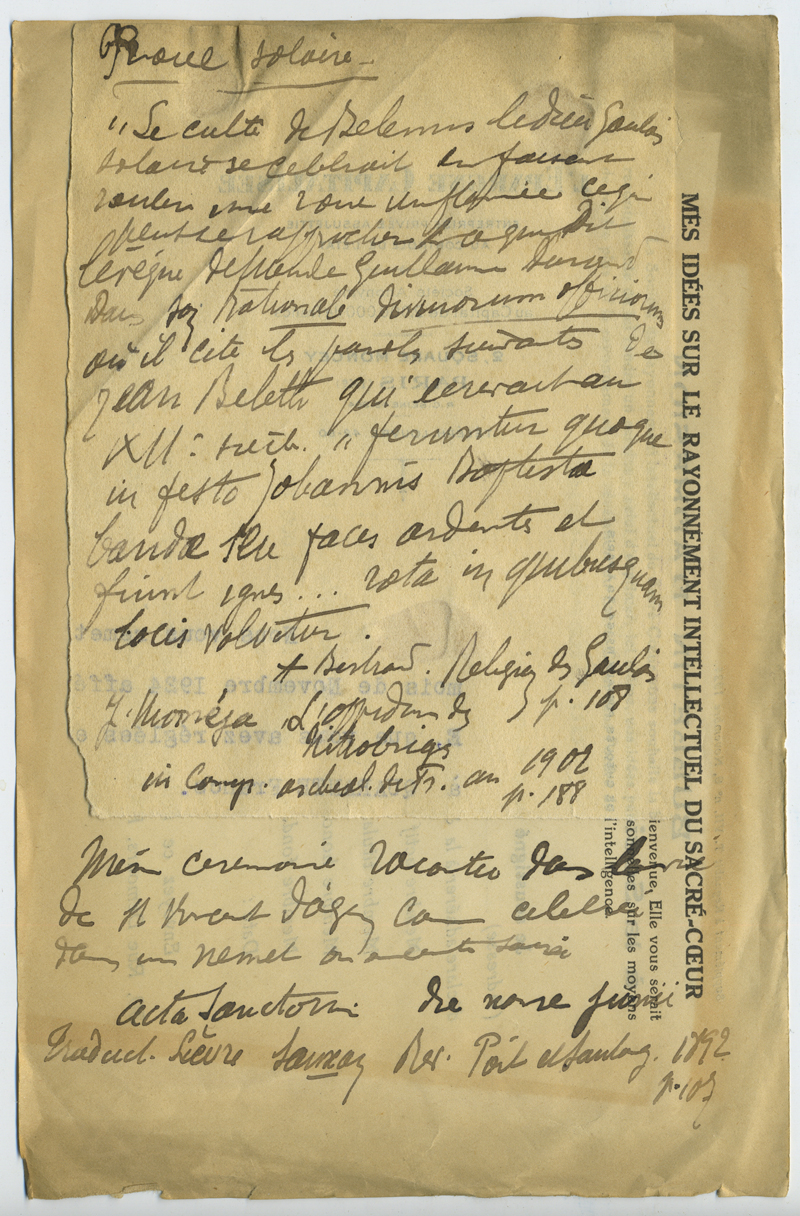 Roue solaire
"Le culte de Belenus le dieu Gaulois
solaire se celebrait en faisant
rouler une roue enflamée ceci
peut se rapprocher de ce que dit
l'évêque de Mende Guillaume Durand
Dans son Rationale divinorum officiorum
où il cite les paroles suivantes de
Jean Beleth qui ecrivait au
XII: siècle. "feruntur quoque
in festo Johannis Baptistæ
bandæ seu faces ardentes et
fiunt ignes... rota in quibusquam
locis volvitur.
Bertrand. Religion des Gaulois
p. 108
J. Momméja L'oppidum des
Nitiobriges
in Congr. archéol. de Fr. an 1902
p. 188
Même ceremonie racontée dans la vie
de St Vincent d'Agen comme celebrée
dans un nemet ou enceinte sacrée
Acta Sanctorum die nono junii
Traduct. Lièvre Rev. Poit et Saintong. 1892
MES IDÉES SUR LE RAYONNEMENT INTELLECTUEL DU SACRÉ-CŒUR
ienvenue, Elle vous serait
sur les moyens
l'intelligence.